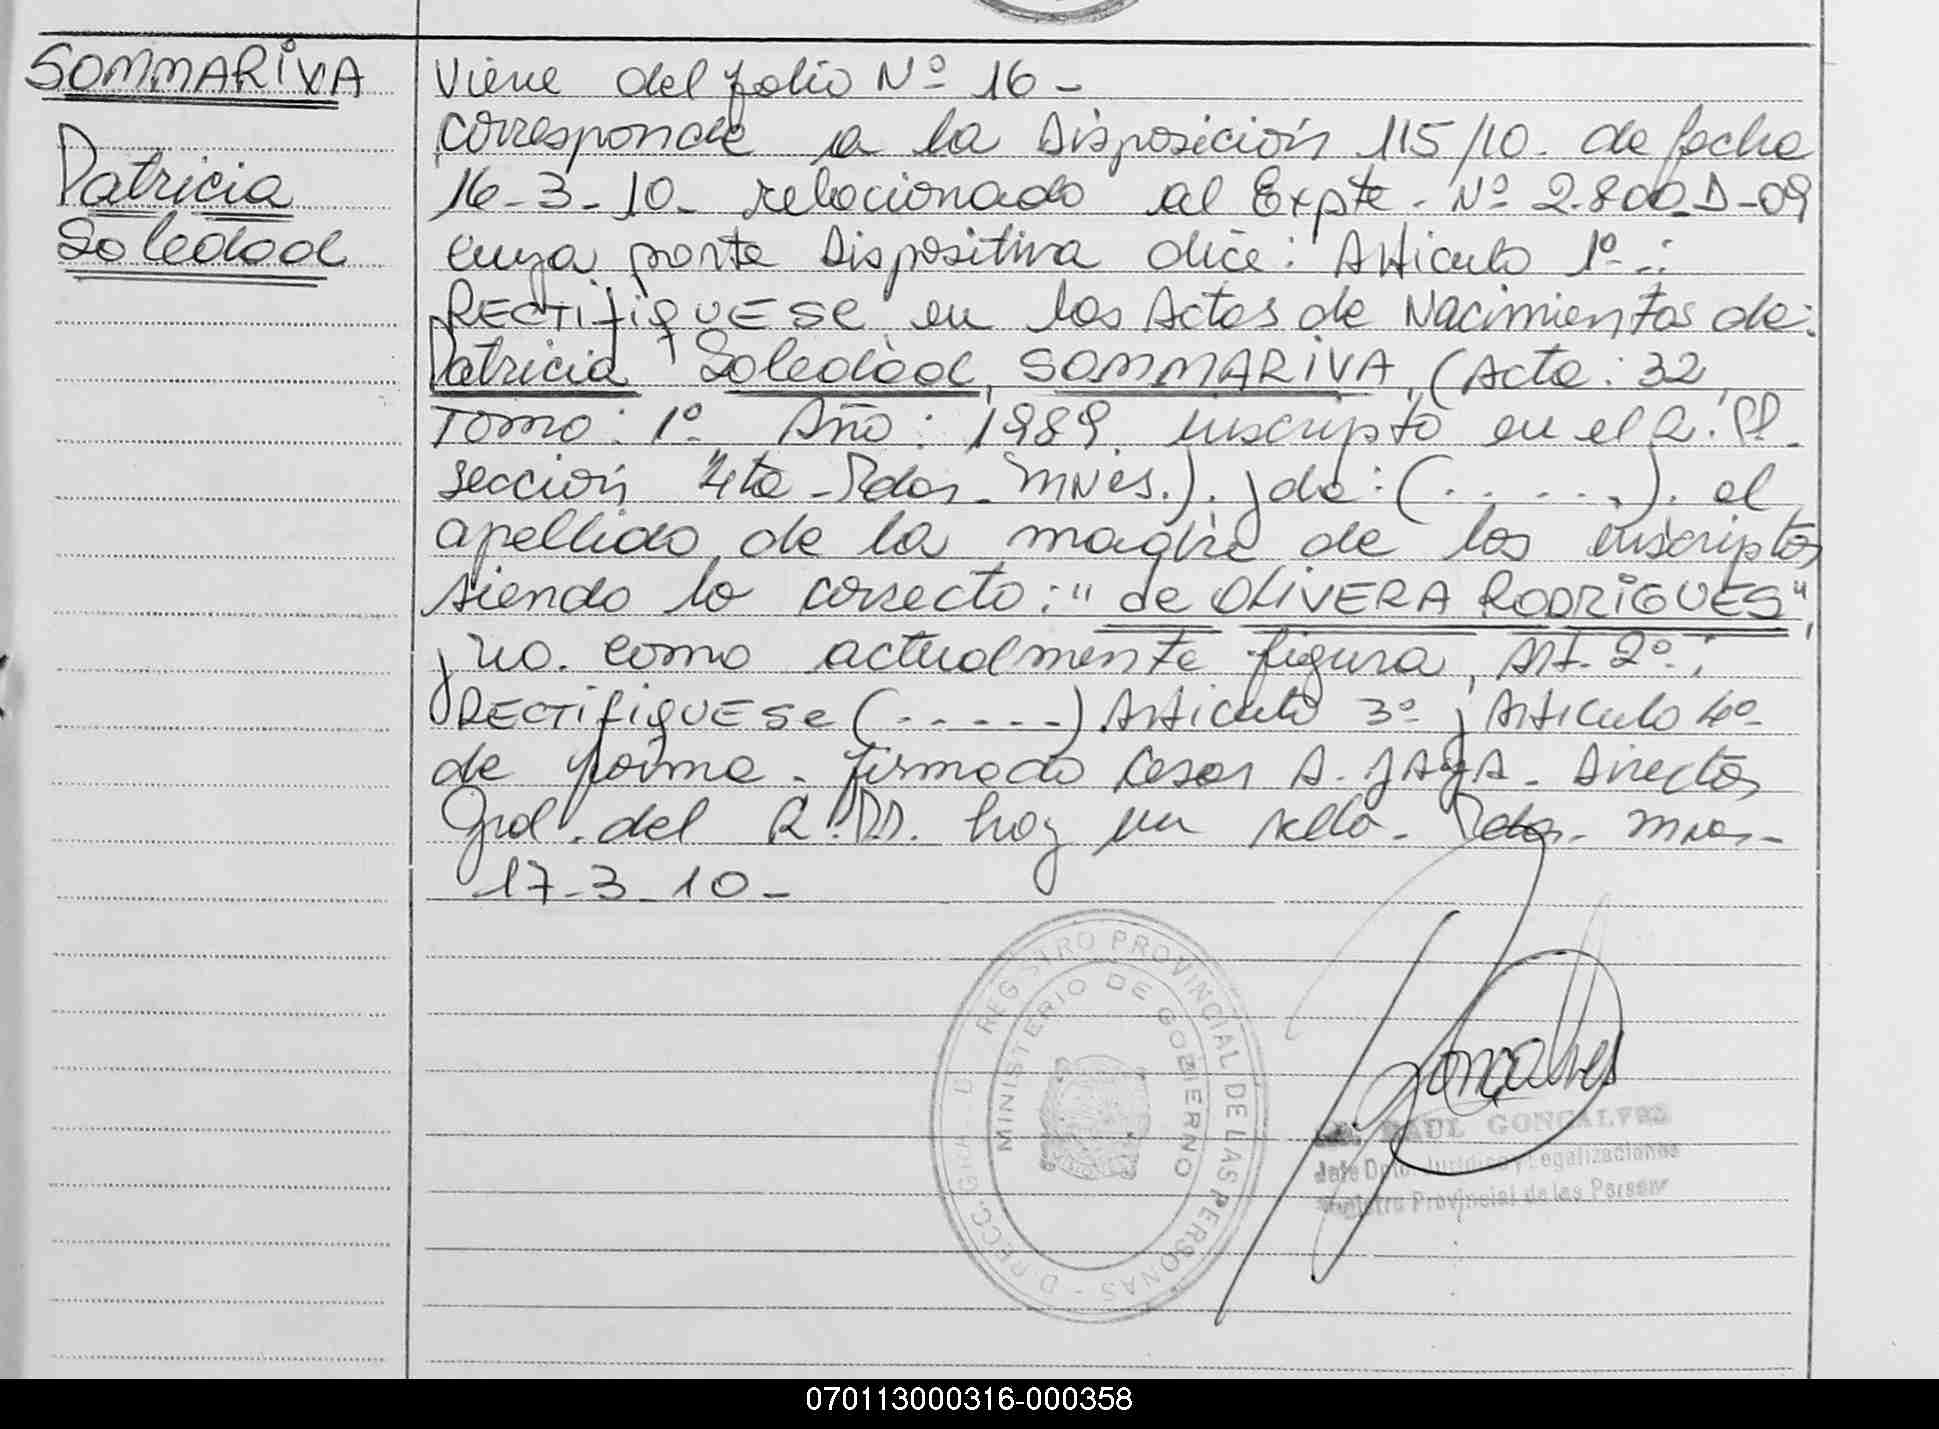 SOMMARIVA
Patricia
Soledad
Viene del folio Nº 16 -
corresponde a la Disposición 115/10. de fecha
16-3-10- relacionado al Expte. Nº 2.800-D-09
cuya parte Dispositiva dice: Articulo 1º.:
RECTIFIQUESE en las Actas de Nacimientos de:
Patricia Soledad, SOMMARIVA, (Acta: 32,
Tomo: 1º. Año: 1989 inscripto en el R.PP.
sección 4ta - Pdas. Mnes.). y de: (. . . . .). el
apellido de la madre de los inscriptos
siendo lo correcto: "de OLIVERA RODRIGUES",
y no. como actualmente figura, Art. 2º.:
RECTIFIQUESE (. . . . .) Articulo 3º y Articulo 4º
de forma. firmado Cesar A. JAYA. Director
Gral. del R.PP. hay un sello. Pdas. Mnes-
17-3-10-
DIRECC. GRAL. D. REGISTRO PROVINCIAL DE LAS PERSONAS -
MINISTERIO DE GOBIERNO
Goncalves
RAUL GONCALVES
Jefe Dpto. Jurídico y Legalizaciones
Registro Provincial de las Person
070113000316-000358